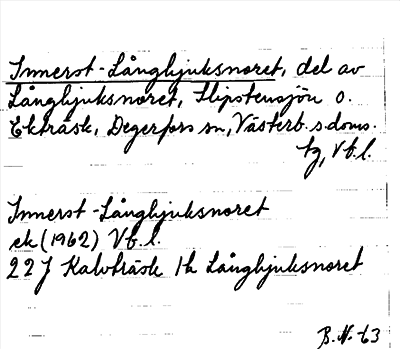 Innerst-Långhjuksnoret, del av
Långhjuksnoret, Slipstensjön o.
Ekträsk, Degerfors sn, Västerb. s. doms.
tg, Vb. l.
Innerst-Långhjuksnoret
ek (1962) Vb. l.
22J Kalvträsk 1h Långhjuksnoret
B. N. 63